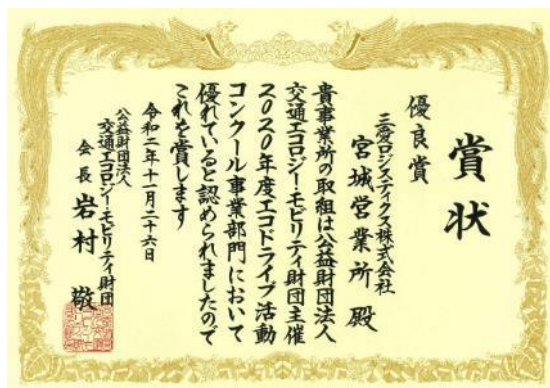 賞状
優良賞
三愛ロジスティクス株式会社
宮城営業所 殿
貴事業所の取組は公益財団法人
交通エコロジー・モビリティ財団主催
2020年度エコドライブ活動
コンクール事業部門において
優れていると認められましたので
これを賞します
令和二年十一月二十六日
公益財団法人
交通エコロジー・モビリティ財団
会長 岩村 敬